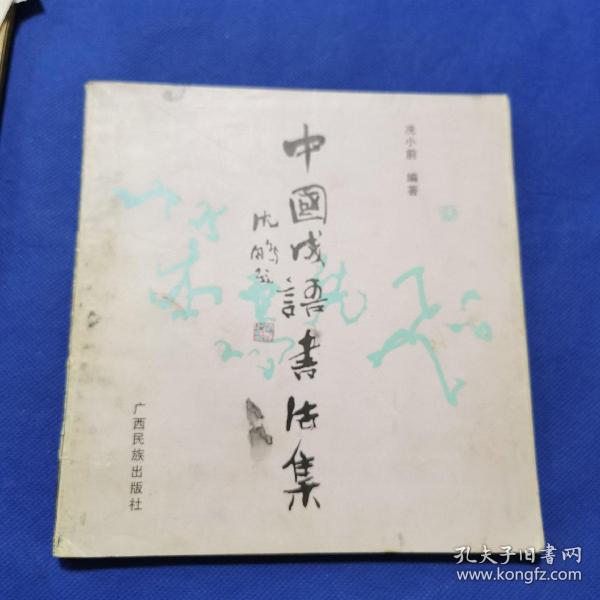 冼小前 编著
中國成語書法集
沈鹏题
广西民族出版社
孔夫子旧书网
www.kongfz.com